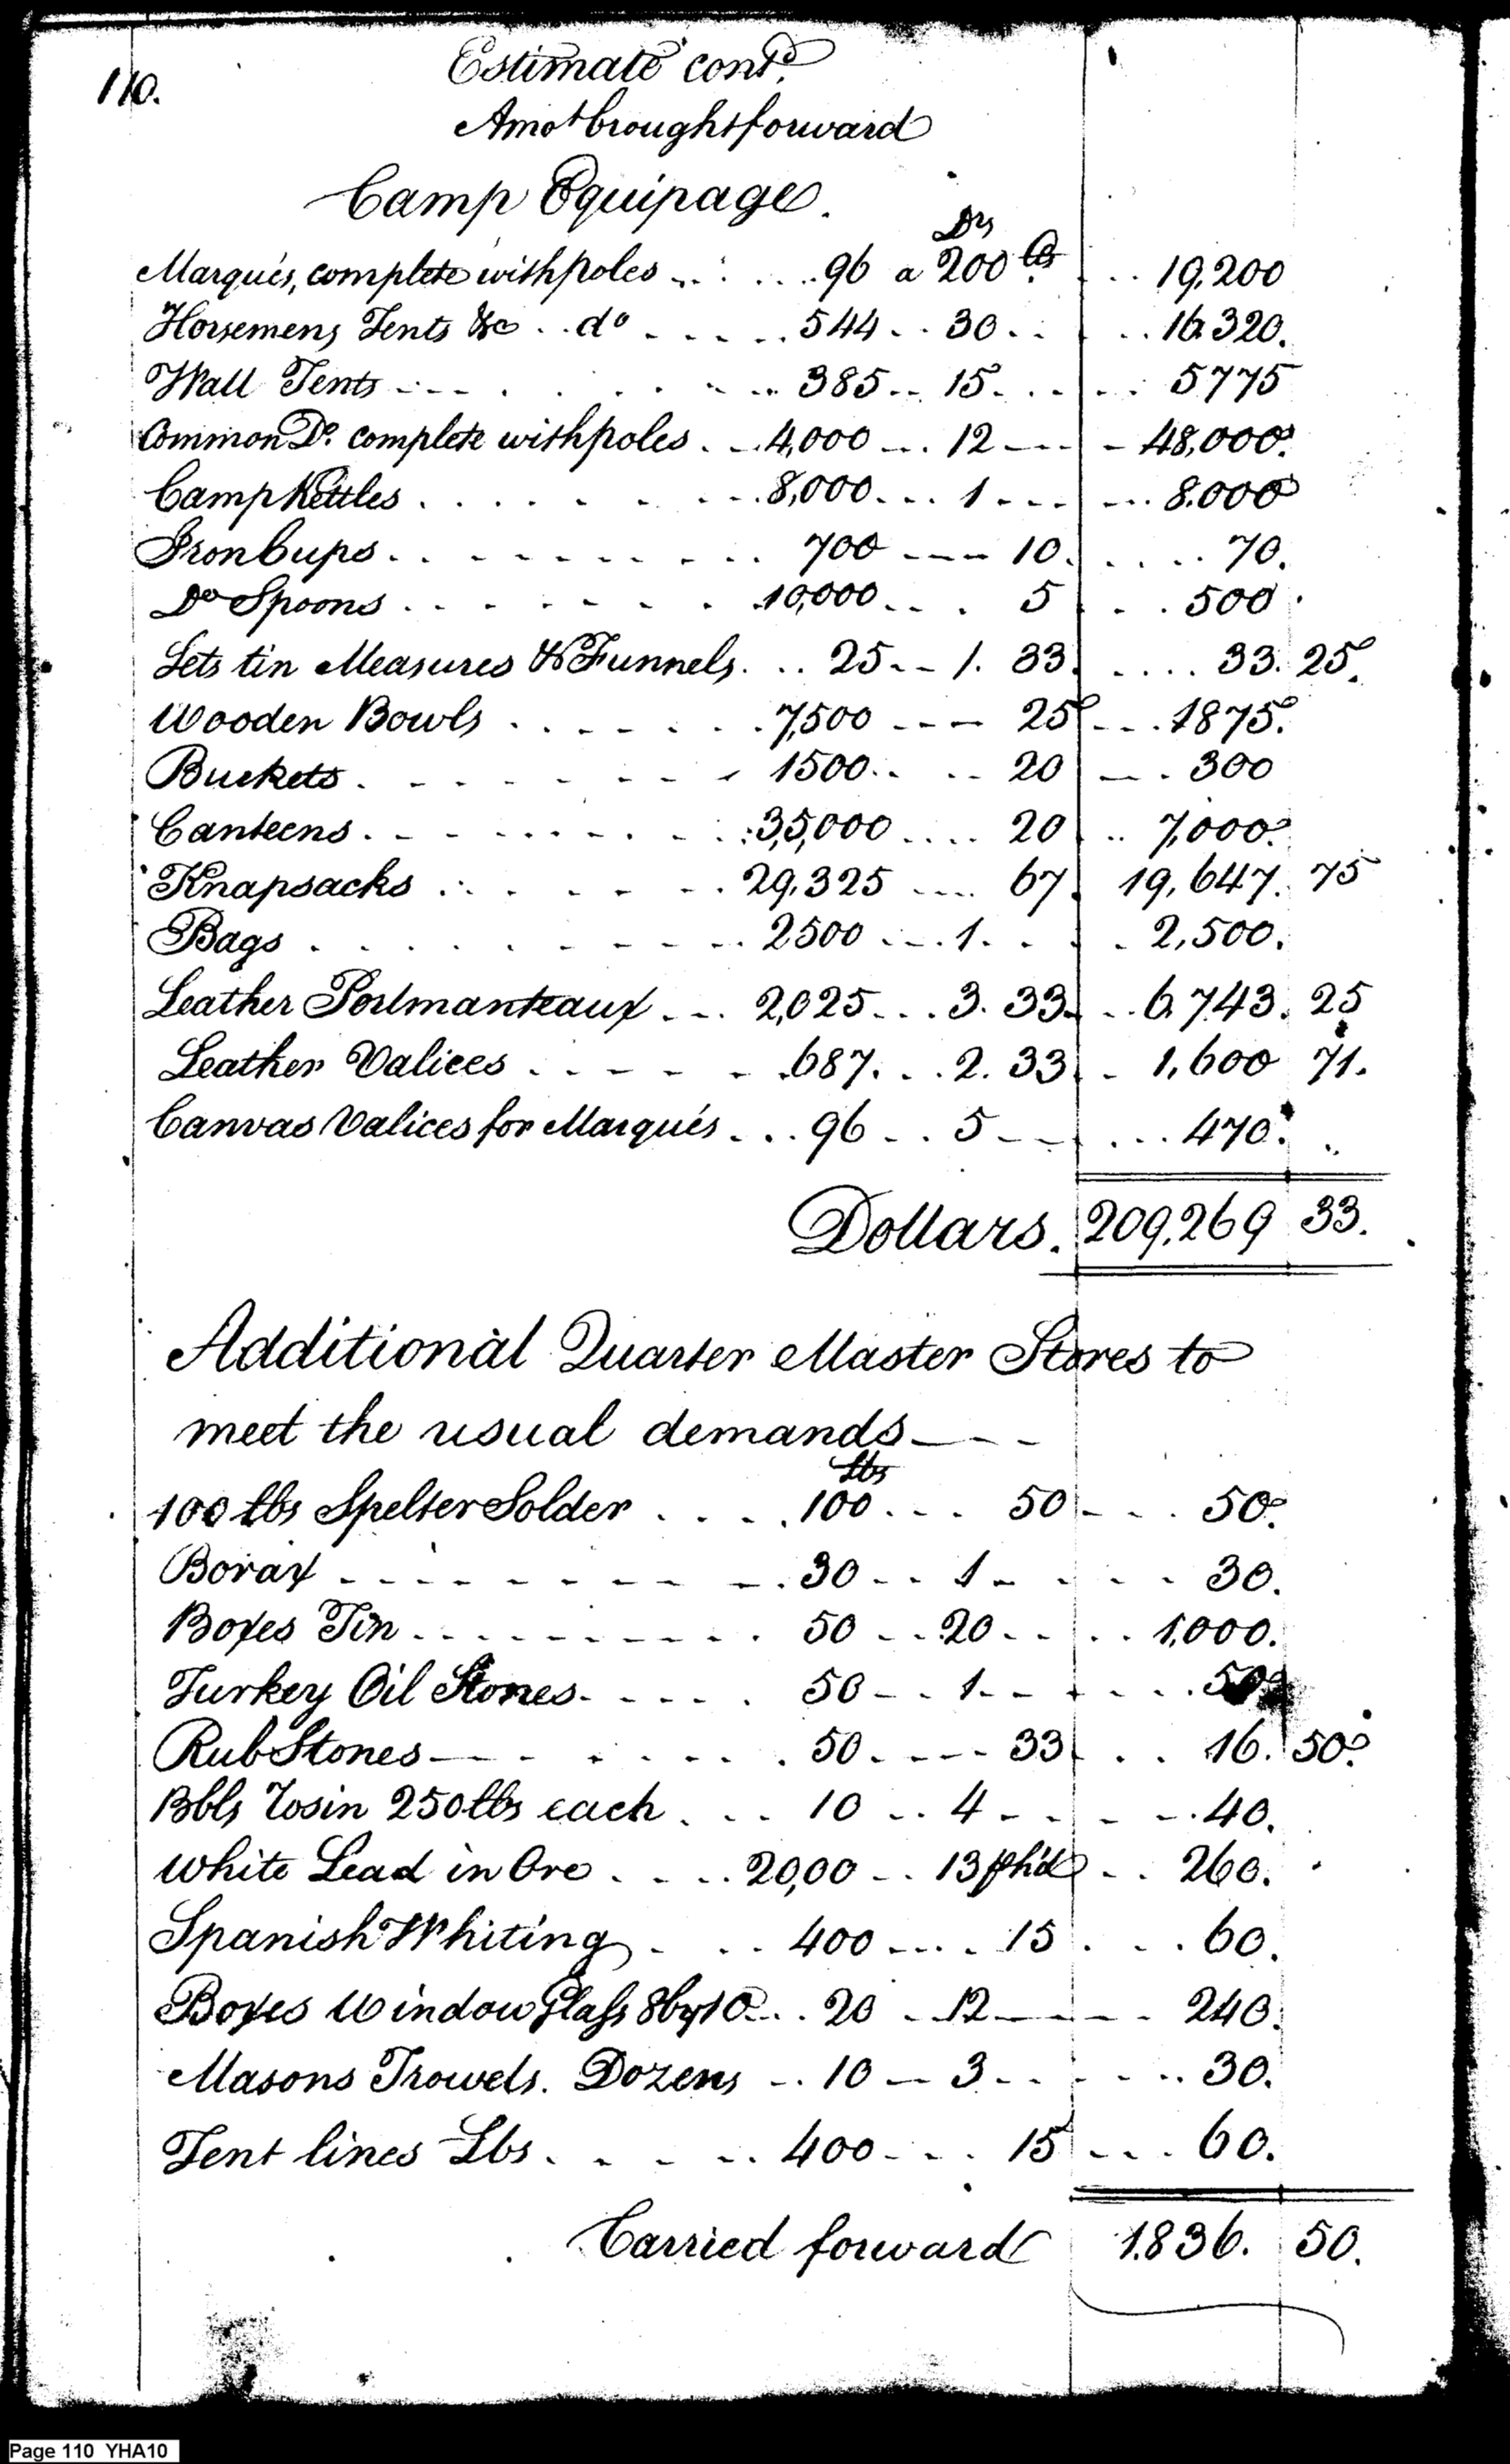 110.
Estimate cont.d
Amot brought forward
Camp Equipage.
Drs Cts
Marqués, complete with poles ... 96 a 200 ... 19,200
Horsemens Tents &c .. do ..... 544 .. 30 .. .. 16.320.
Wall Tents --- ... 385 .. 15. ... 5775
Common Do. complete with poles . .. 4,000 ... 12 --- - 48,000.
Camp Kettles ...... 8,000 ... 1 --- ... 8.000
Iron Cups ........ 700 --- 10. .... 70.
Do Spoons ....... 10,000 ... 5 ... 500
Sets tin Measures & Funnels. .. 25 .. 1. 33. .... 33. 25.
Wooden Bowls ...... 7,500 --- 25 ... 1875.
Buckets ....... 1500 .. .. 20 -. 300
Canteens ........ 35,000 .... 20 .. 7,000.
Knapsacks ...... 29,325 .... 67. 19,647. 75
Bags ......... 2500 ... 1. . . 2,500.
Leather Portmanteaux ... 2,025 ... 3. 33. .. 6.743. 25
Leather Valices ..... 687. .. 2. 33. . 1,600 71.
Canvas Valices for Marqués ... 96 .. 5 -- ... 470.
Dollars. 209,269 33.
Additional Quarter Master Stores to
meet the usual demands ---
Lbs
100 lbs Spelter Solder ..... 100 ... 50 ... 50.
Borax --------- 30 .. 1 .... 30.
Boxes Tin .......... 50 .. 20 .. .. 1,000.
Turkey Oil Stones ..... 50 .. 1 .. .... 50
Rub Stones ------ 50. --- 33 ... 16. 50.
Bbls Rosin 250 lbs each ... 10 .. 4 .... 40.
White Lead in Ore .... 20,00 .. 13 pr hd .. 260.
Spanish Whiting ... 400 .... 15 ... 60.
Boxes Window Glass 8 by 10 ... 20 .. 12 ---- 240.
Masons Trowels. Dozens .. 10 -- 3 .. .... 30.
Tent lines Lbs ..... 400 ... 15 ... 60.
Carried forward 1.836. 50.
Page 110 YHA10